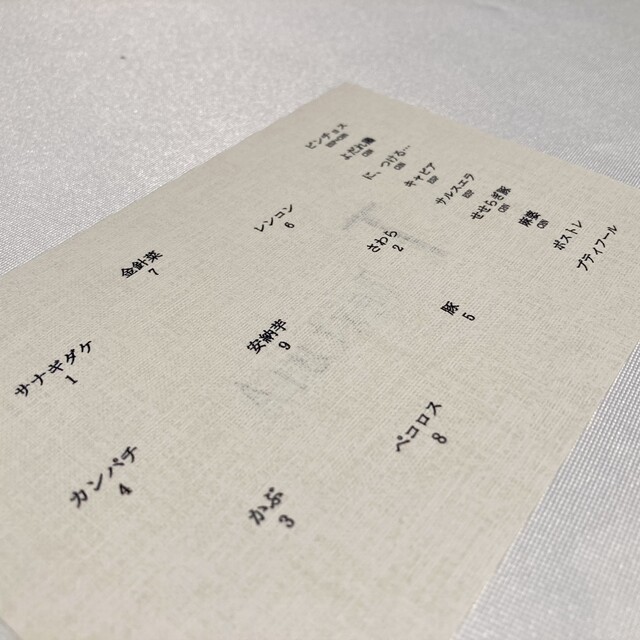 ピンチョス
よだれ鶏
に、つける…
キャビア
サルスエラ
せせらぎ豚
麻婆
ポストレ
プティフール
金針菜
7
レンコン
6
さわら
2
サナギダケ
1
安納芋
9
豚
5
カンパチ
4
かぶ
3
ペコロス
8